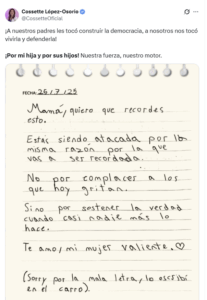 Cossette López-Osorio
@CossetteOficial
¡A nuestros padres les tocó construir la democracia, a nosotros nos tocó
vivirla y defenderla!
¡Por mi hija y por sus hijos! Nuestra fuerza, nuestro motor.
FECHA: 26/7/25
Mamá, quiero que recordes
esto.
Estás siendo atacada por la
misma razón por la que
vas a ser recordada.
No por complacer a los
que hoy gritan.
Sino por sostener la verdad
cuando casi nadie más lo
hace.
Te amo, mi mujer valiente.♡
(Sorry por la mala letra, lo escribí
en el carro).